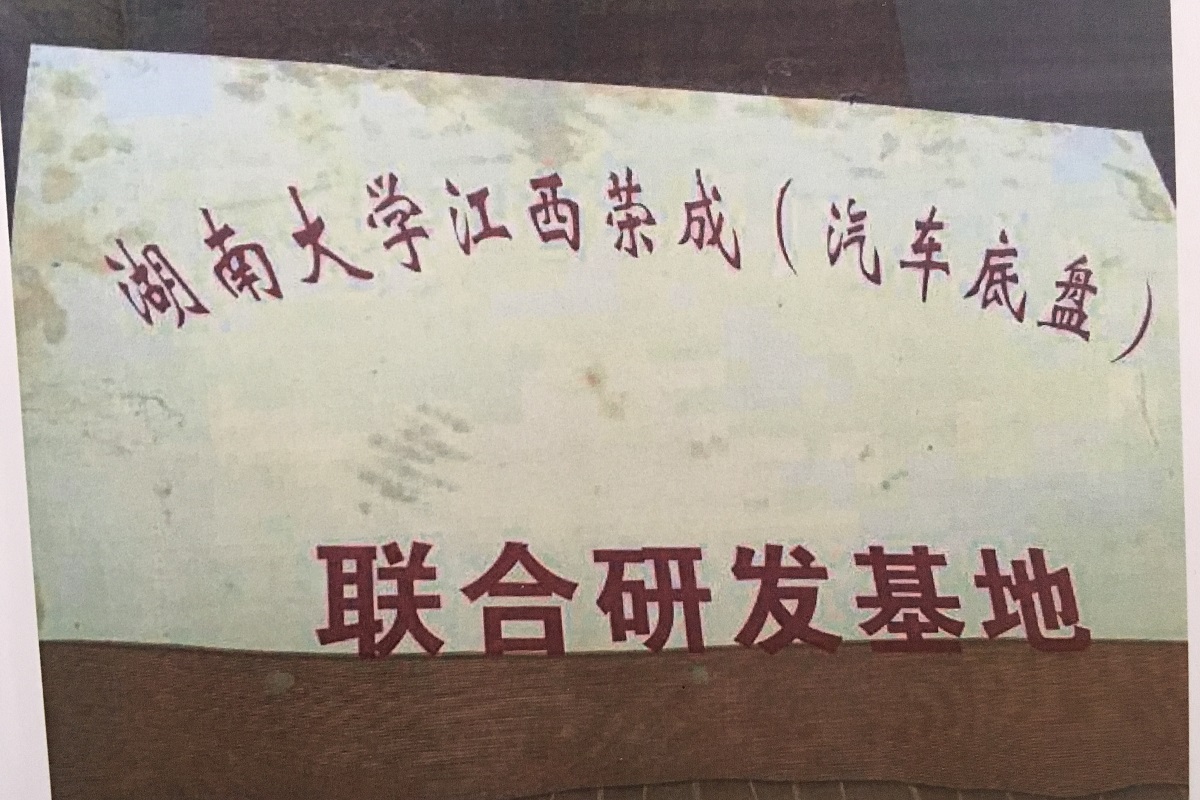 湖南大学江西荣成（汽车底盘）
联合研发基地